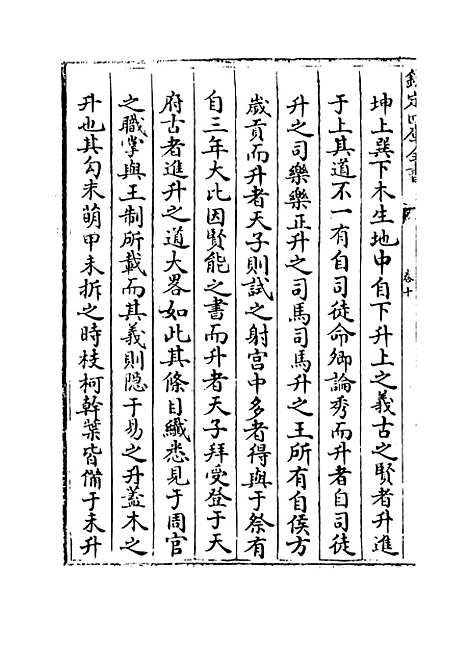 欽定四庫全書
卷十
坤上巽下木生地中自下升上之義古之賢者升進
于上其道不一有自司徒命卿論秀而升者自司徒
升之司樂樂正升之司馬司馬升之王所有自侯方
歲貢而升者天子則試之射宫中多者得與于祭有
自三年大比因賢能之書而升者天子拜受登于天
府古者進升之道大畧如此其條目纖悉見于周官
之職掌與王制所載而其義則隠于易之升葢木之
升也其勾未萌甲未拆之時枝柯幹葉皆備于未升